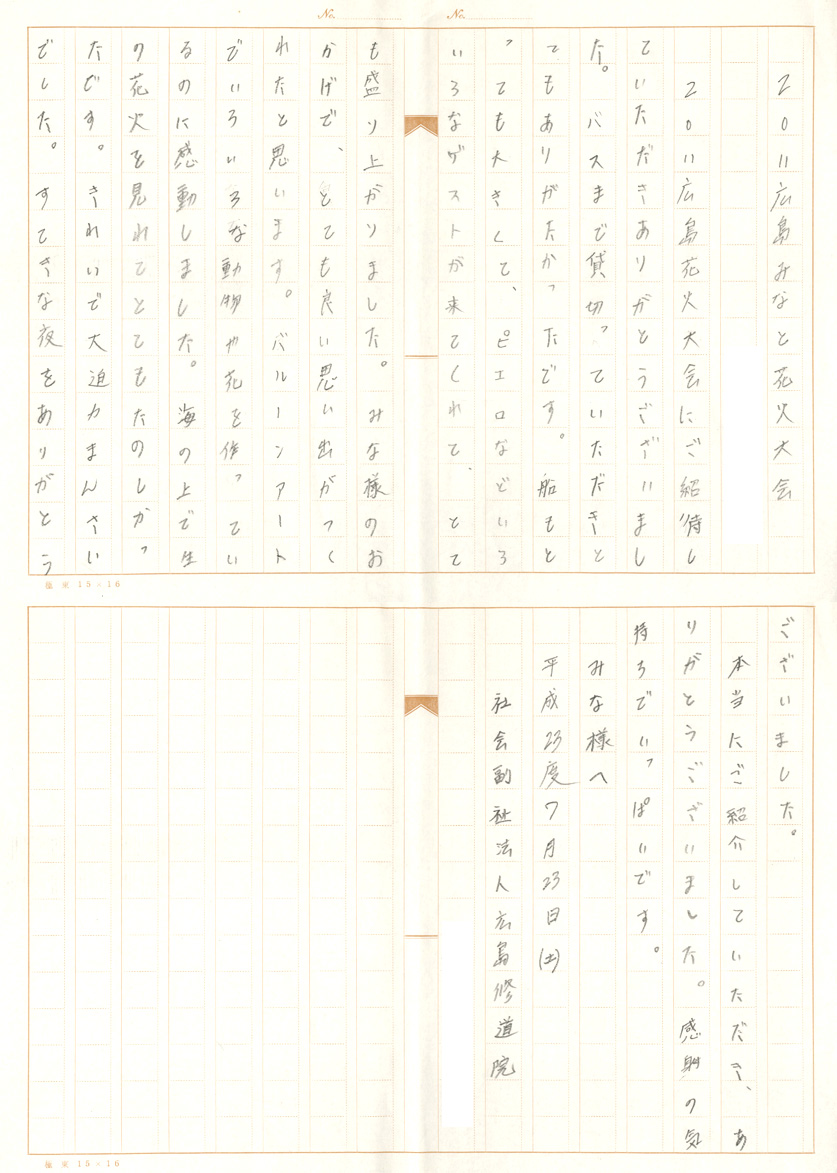 No.
No.
2011広島みなと花火大会
2011広島花火大会にご紹待し
ていただきありがとうございまし
た。バスまで貸切っていただきと
てもありがたかったです。船もと
っても大きくて、ピエロなどいろ
いろなゲストが来てくれて、とて
も盛り上がりました。みな様のお
かげで、とても良い思い出がつく
れたと思います。バルーンアート
でいろいろな動物や花を作ってい
るのに感動しました。海の上で生
の花火を見れてとてもたのしかっ
たです。きれいで大迫力まんさい
でした。すてきな夜をありがとう
15×16
ございました。
本当にご紹介していただき、あ
りがとうございました。感射の気
持ちでいっぱいです。
みな様へ
平成23度7月23日(土)
社会副社法人広島修道院
15×16